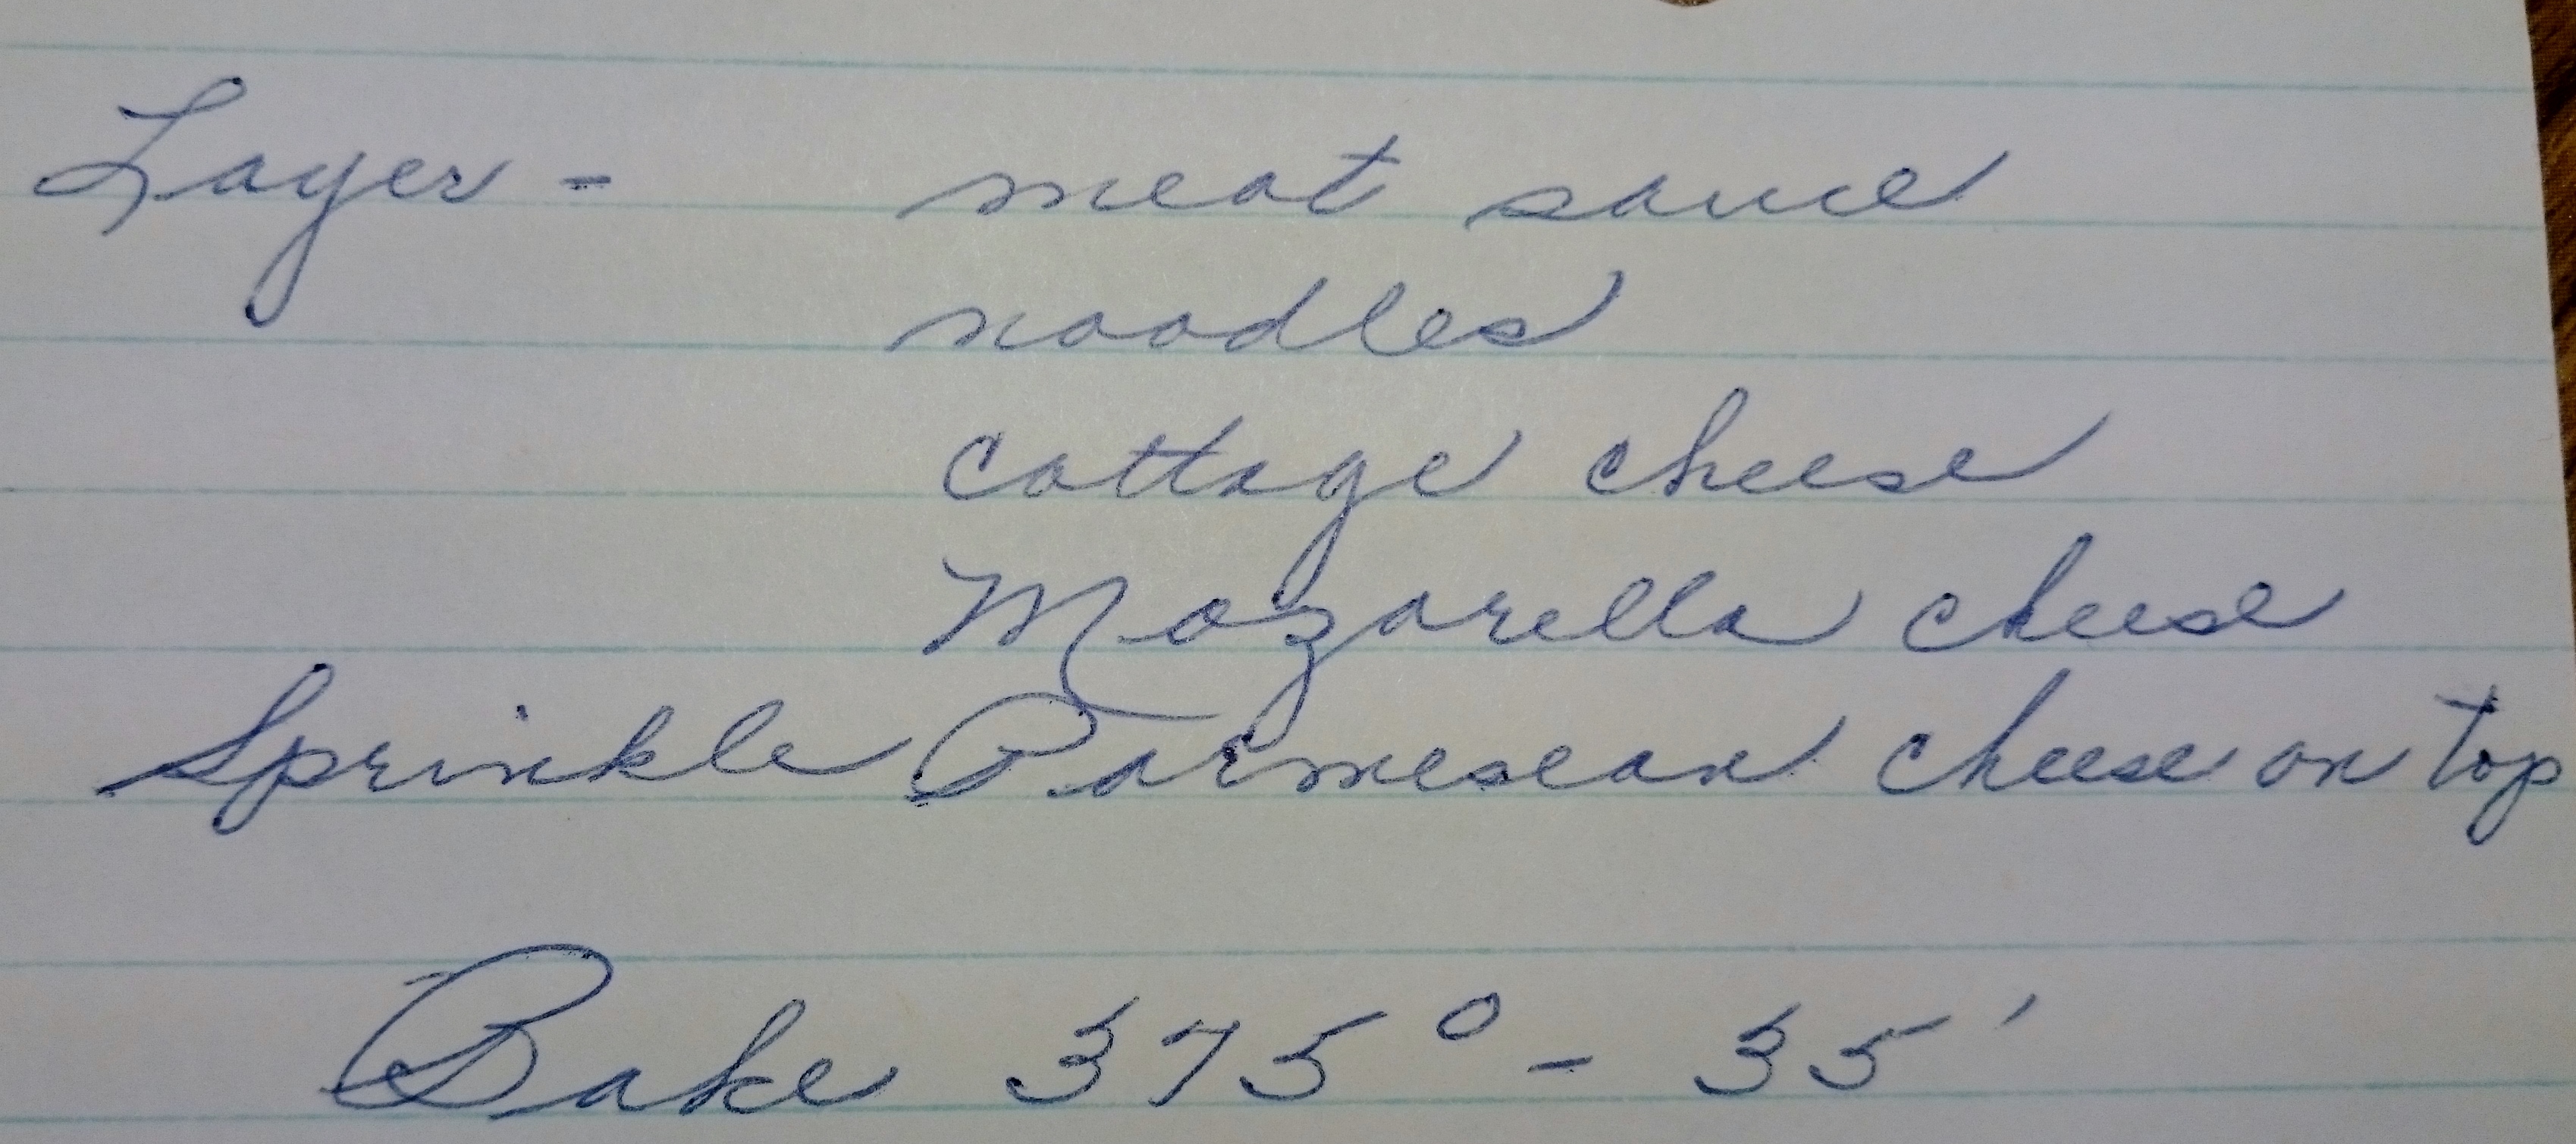 Layer - meat sauce
noodles
cottage cheese
Mozarella cheese
Sprinkle Parmesean cheese on top
Bake 375° - 35'